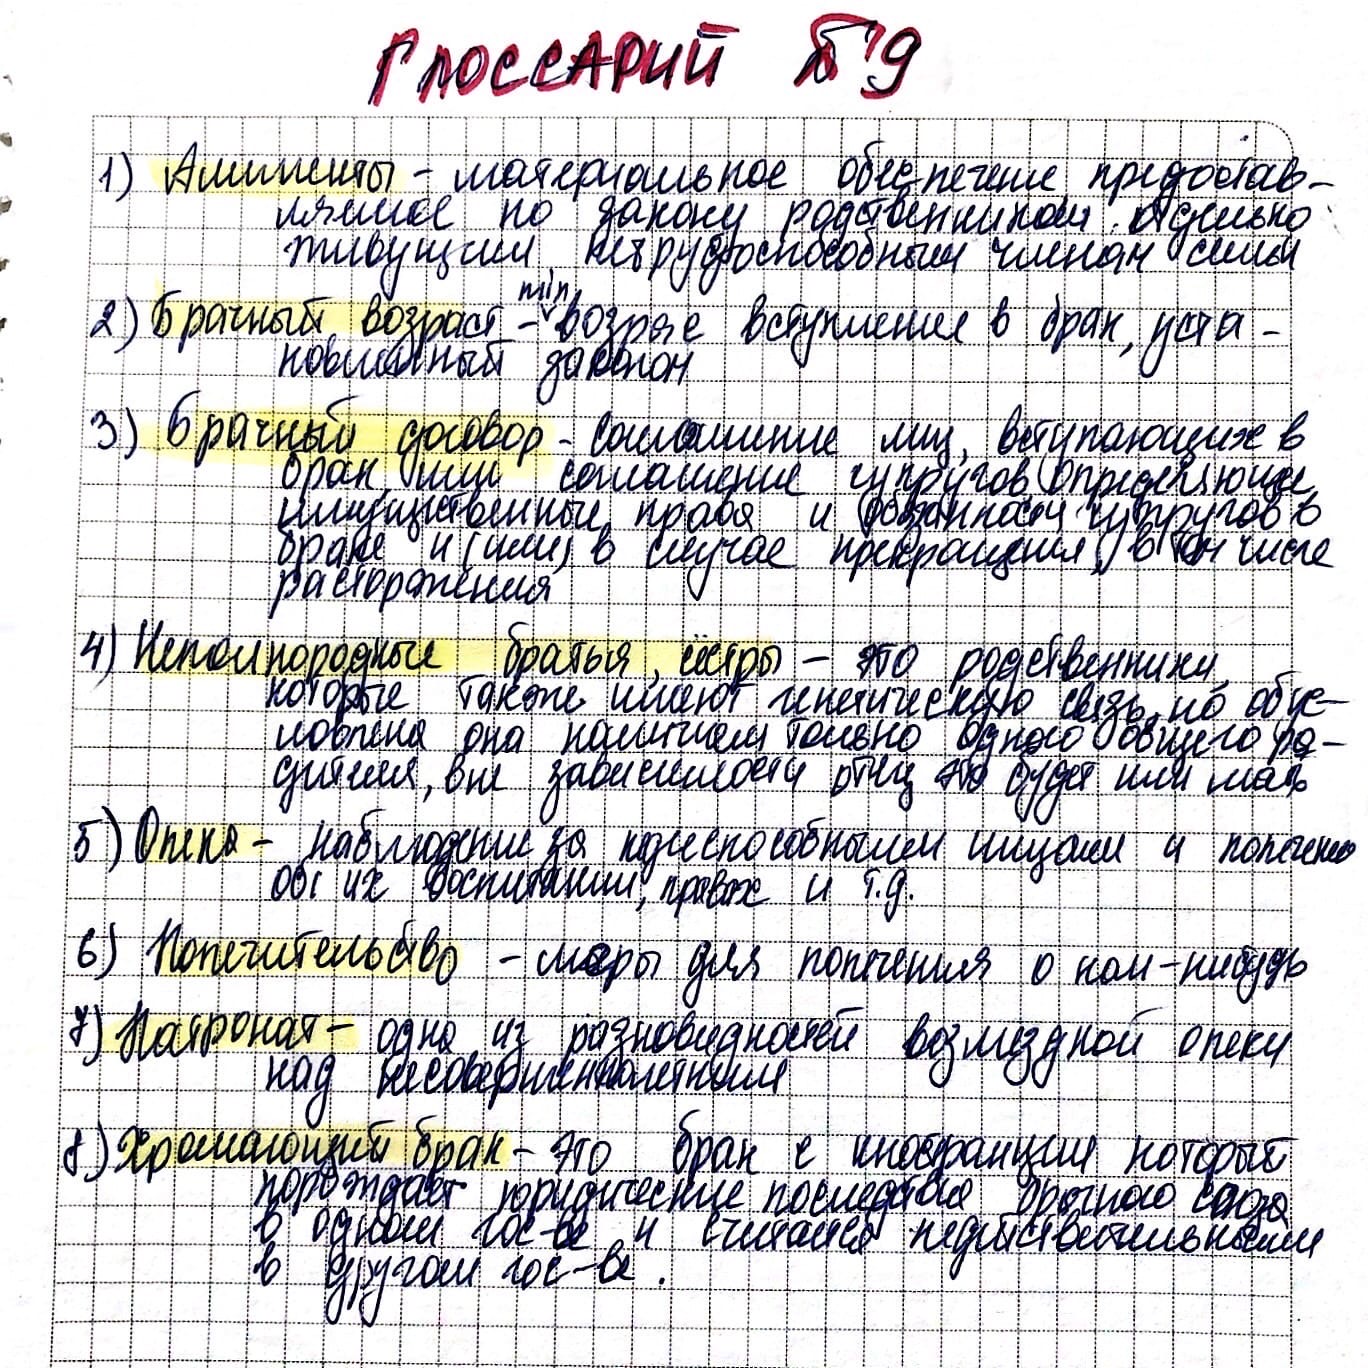 Глоссарий Б9
1) Алименты - материальное обеспечение предостав-
ляемое по закону родственникам отдельно
живущим, нетрудоспособным членам семьи
2) Брачный возраст - min возраст вступления в брак, уста-
новленный законом
3) Брачный договор - соглашение лиц, вступающих в
брак или соглашение супругов определяющее
имущественные права и обязанности супругов в
браке и (или) в случае прекращения, в том числе
расторжения
4) Неполнородные братья, сёстры - это родственники,
которые также имеют генетическую связь, но обус-
ловлена она наличием только одного общего ро-
дителя, вне зависимости отец это будет или мать
5) Опека - наблюдение за недееспособными лицами и попечение
об их воспитании, правах и т.д.
6) Попечительство - меры для попечения о ком-нибудь
7) Патронат - одна из разновидностей возмездной опеки
над несовершеннолетними
8) Хромающий брак - это брак с иностранцем который
порождает юридические последствия брачного союза
в одном гос-ве и считается недействительным
в другом гос-ве.